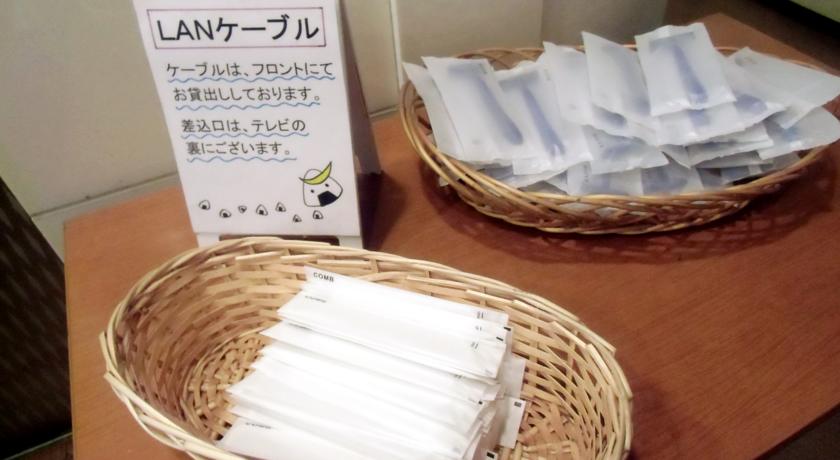 LANケーブル
ケーブルは、フロントにて
お貸出ししております。
差込口は、テレビの
裏にございます。
COMB